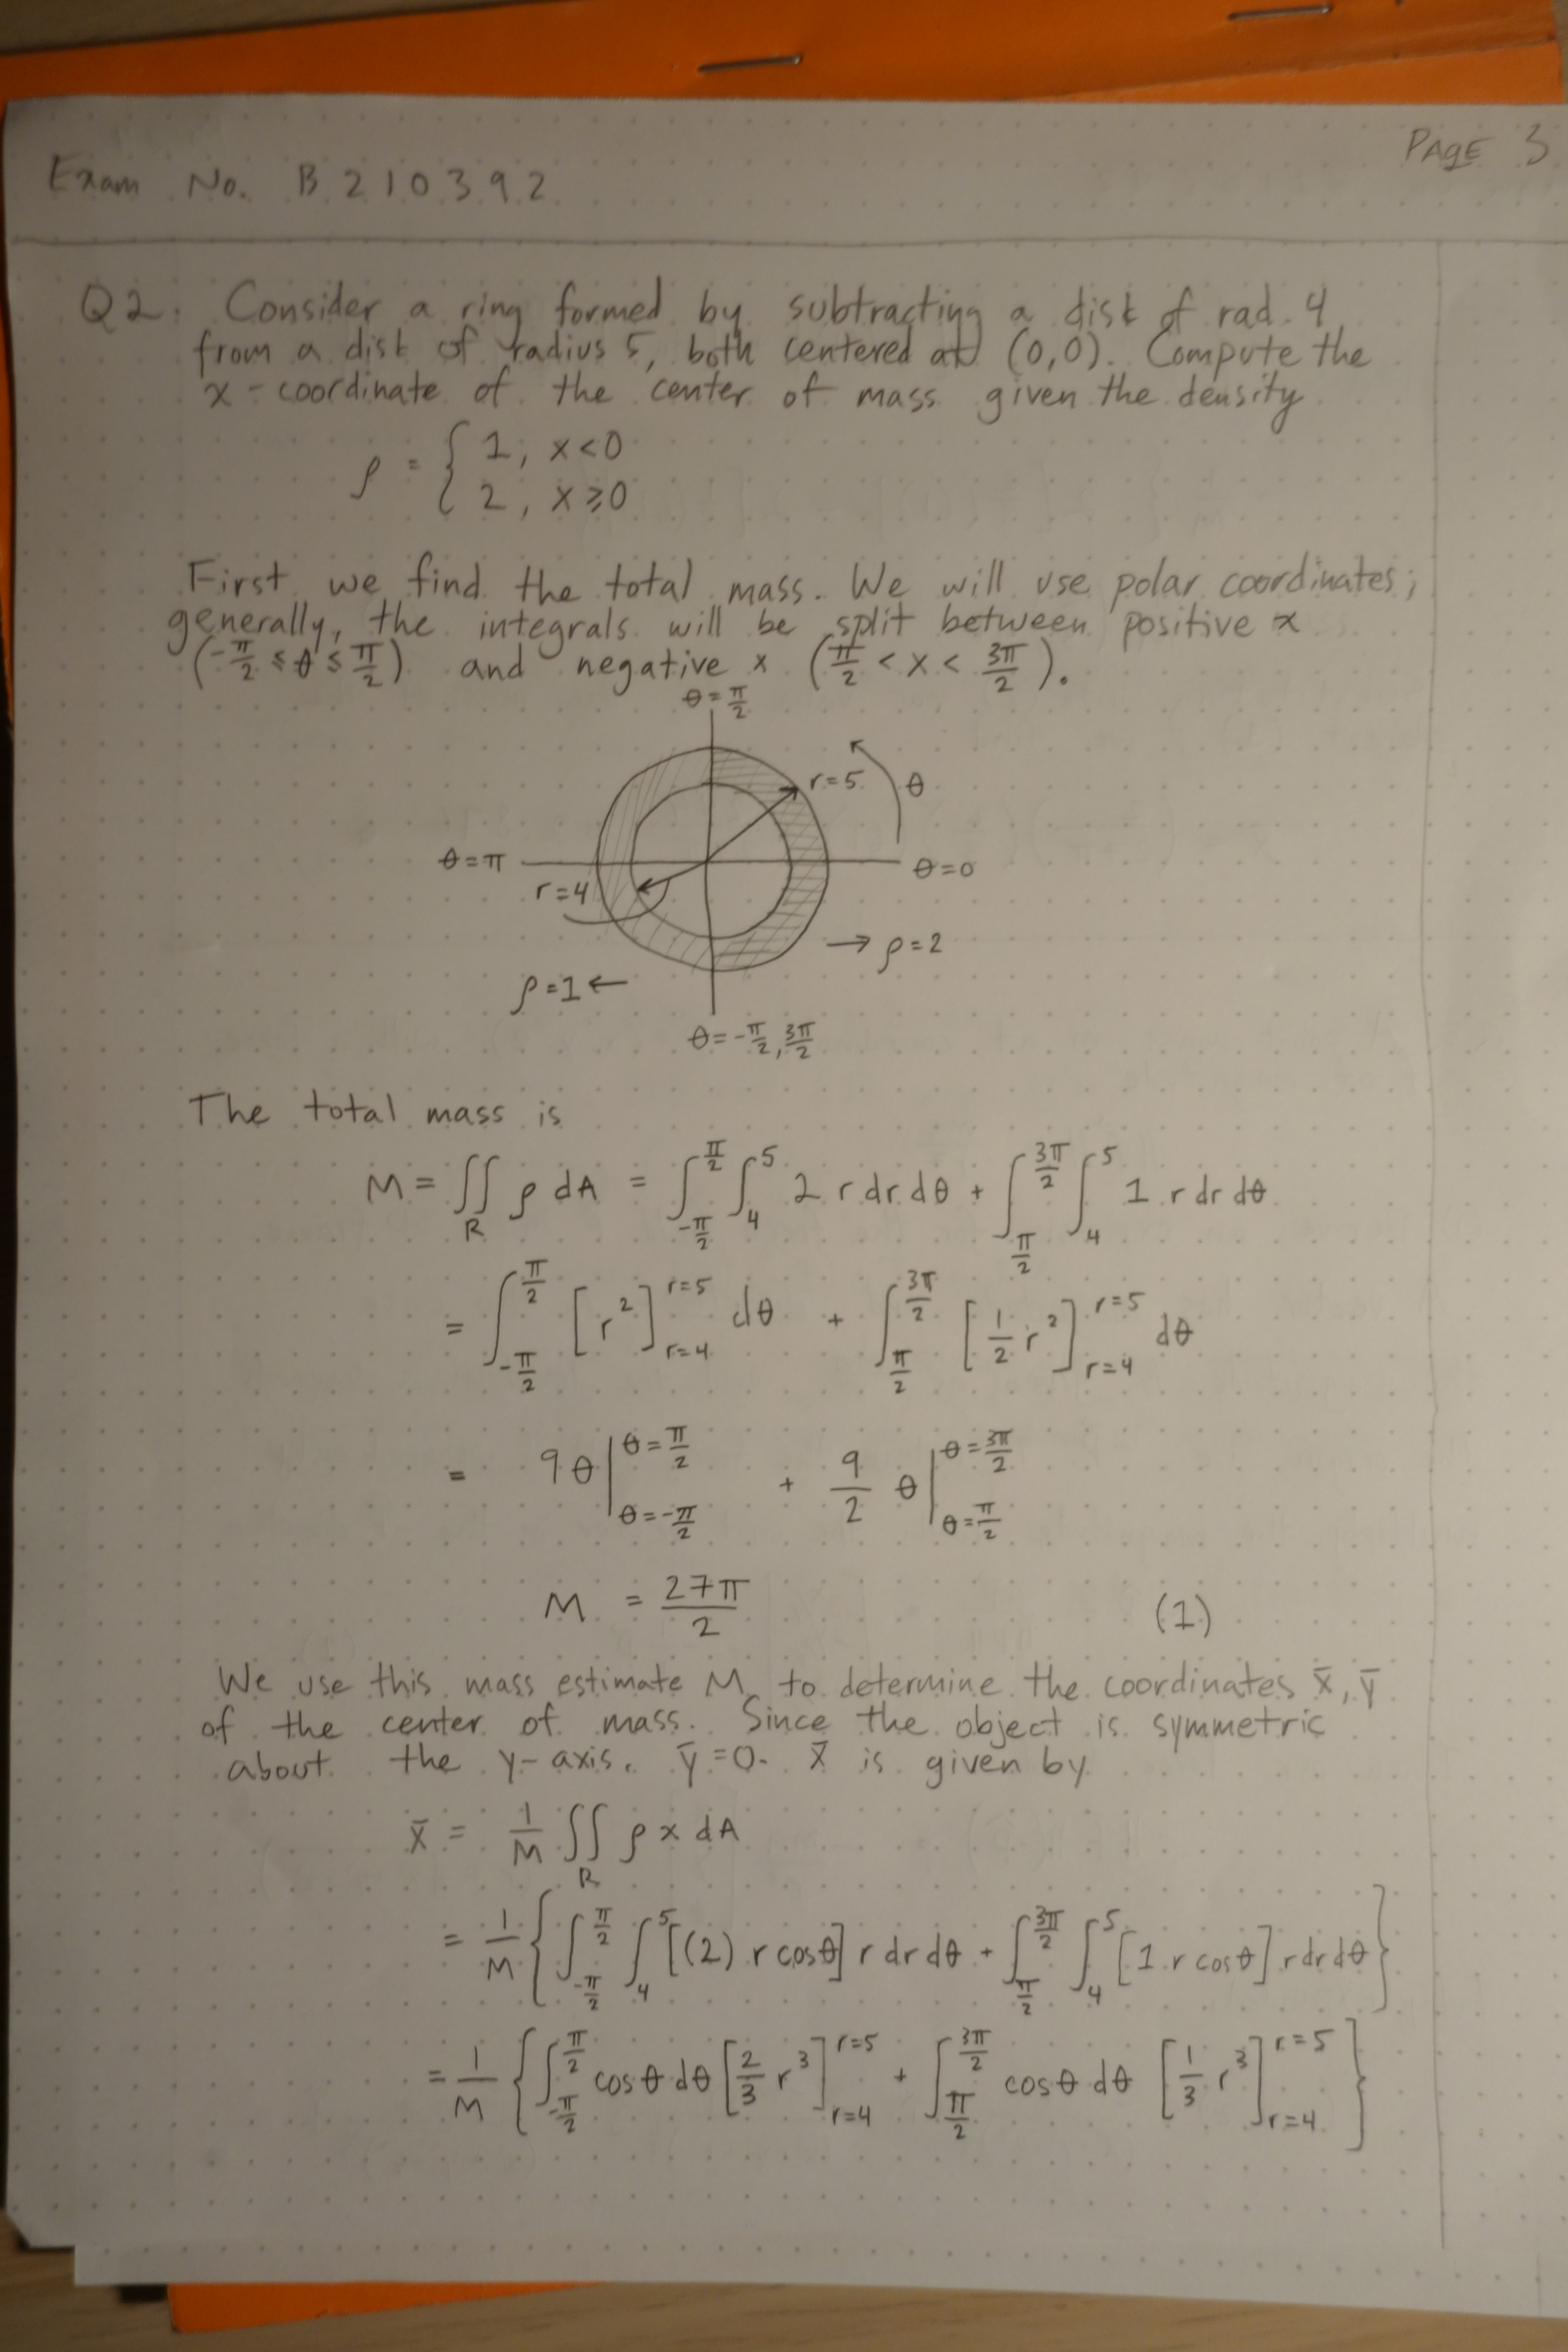 PAGE 3
Exam No. B210392
Q2. Consider a ring formed by subtracting a disk of rad. 4
from a disk of radius 5, both centered at (0,0). Compute the
x-coordinate of the center of mass given the density
ρ = { 1, x<0
2, x≥0
First we find the total mass. We will use polar coordinates;
generally, the integrals will be split between positive x
(-π/2 ≤ θ ≤ π/2) and negative x (π/2 < x < 3π/2).
θ = π/2
r=5 θ
θ=π θ=0
r=4
→ ρ=2
ρ=1 ←
θ = -π/2, 3π/2
The total mass is
M = ∬_R ρ dA = ∫_{-π/2}^{π/2} ∫_4^5 2 r dr dθ + ∫_{π/2}^{3π/2} ∫_4^5 1 r dr dθ
= ∫_{-π/2}^{π/2} [r²]_{r=4}^{r=5} dθ + ∫_{π/2}^{3π/2} [1/2 r²]_{r=4}^{r=5} dθ
= 9θ |_{θ=-π/2}^{θ=π/2} + 9/2 θ |_{θ=π/2}^{θ=3π/2}
M = 27π/2 (1)
We use this mass estimate M to determine the coordinates x̄, ȳ
of the center of mass. Since the object is symmetric
about the y-axis. ȳ=0. x̄ is given by
x̄ = 1/M ∬_R ρ x dA
= 1/M { ∫_{-π/2}^{π/2} ∫_4^5 [(2) r cosθ] r dr dθ + ∫_{π/2}^{3π/2} ∫_4^5 [1 r cosθ] r dr dθ }
= 1/M { ∫_{-π/2}^{π/2} cosθ dθ [2/3 r³]_{r=4}^{r=5} + ∫_{π/2}^{3π/2} cosθ dθ [1/3 r³]_{r=4}^{r=5} }